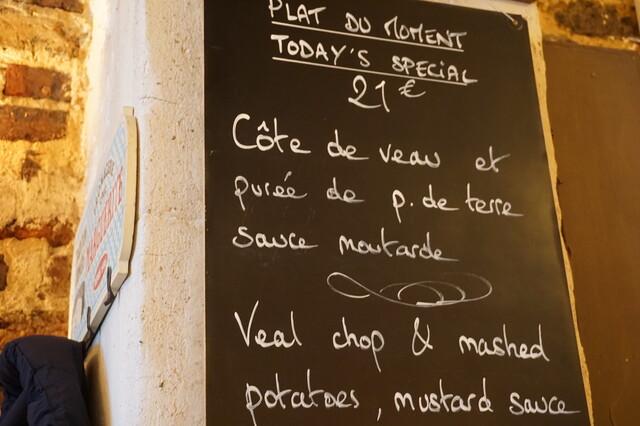 PLAT DU MOMENT
TODAY'S SPECIAL
21 €
Côte de veau et
purée de p. de terre
sauce moutarde
Veal chop & mashed
potatoes, mustard sauce